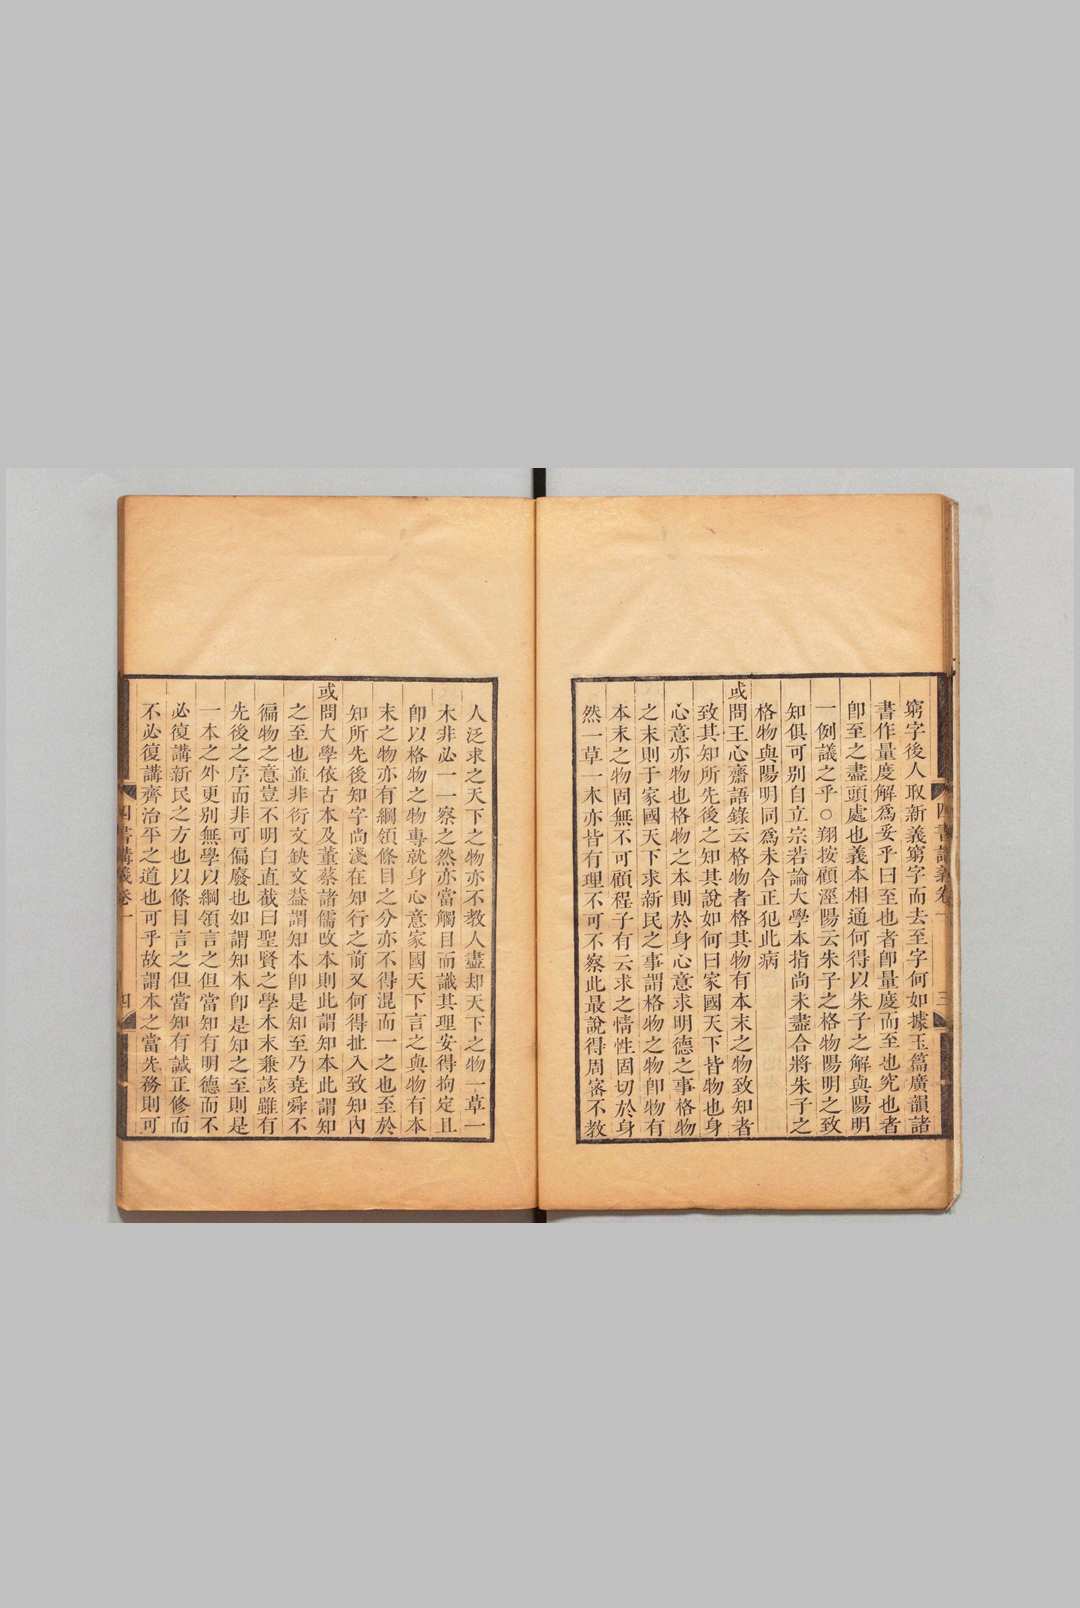 四書講義卷一
三
窮字後人取新義窮字而去至字何如據玉篇廣韻諸
書作量度解爲妥乎曰至也者卽量度而至也究也者
卽至之盡頭處也義本相通何得以朱子之解與陽明
一例議之乎○翔按顧涇陽云朱子之格物陽明之致
知俱可别自立宗若論大學本指尚未盡合將朱子之
格物與陽明同爲未合正犯此病
或問王心齋語錄云格物者格其物有本末之物致知者
致其知所先後之知其說如何曰家國天下皆物也身
心意亦物也格物之本則於身心意求明德之事格物
之末則于家國天下求新民之事謂格物之物卽物有
本末之物固無不可顧程子有云求之情性固切於身
然一草一木亦皆有理不可不察此最說得周審不教
人泛求之天下之物亦不教人盡却天下之物一草一
木非必一一察之然亦當觸目而識其理安得拘定且
卽以格物之物專就身心意家國天下言之與物有本
末之物亦有綱領條目之分亦不得混而一之也至於
知所先後知字尚淺在知行之前又何得扯入致知內
或問大學依古本及董蔡諸儒改本則此謂知本此謂知
之至也並非衍文缺文益謂知本卽是知至乃堯舜不
徧物之意豈不明白直截曰聖賢之學本末兼該雖有
先後之序而非可偏廢也如謂知本卽是知之至則是
一本之外更别無學以綱領言之但當知有明德而不
必復講新民之方也以條目言之但當知有誠正修而
不必復講齊治平之道也可乎故謂本之當先務則可
四書講義卷一
四